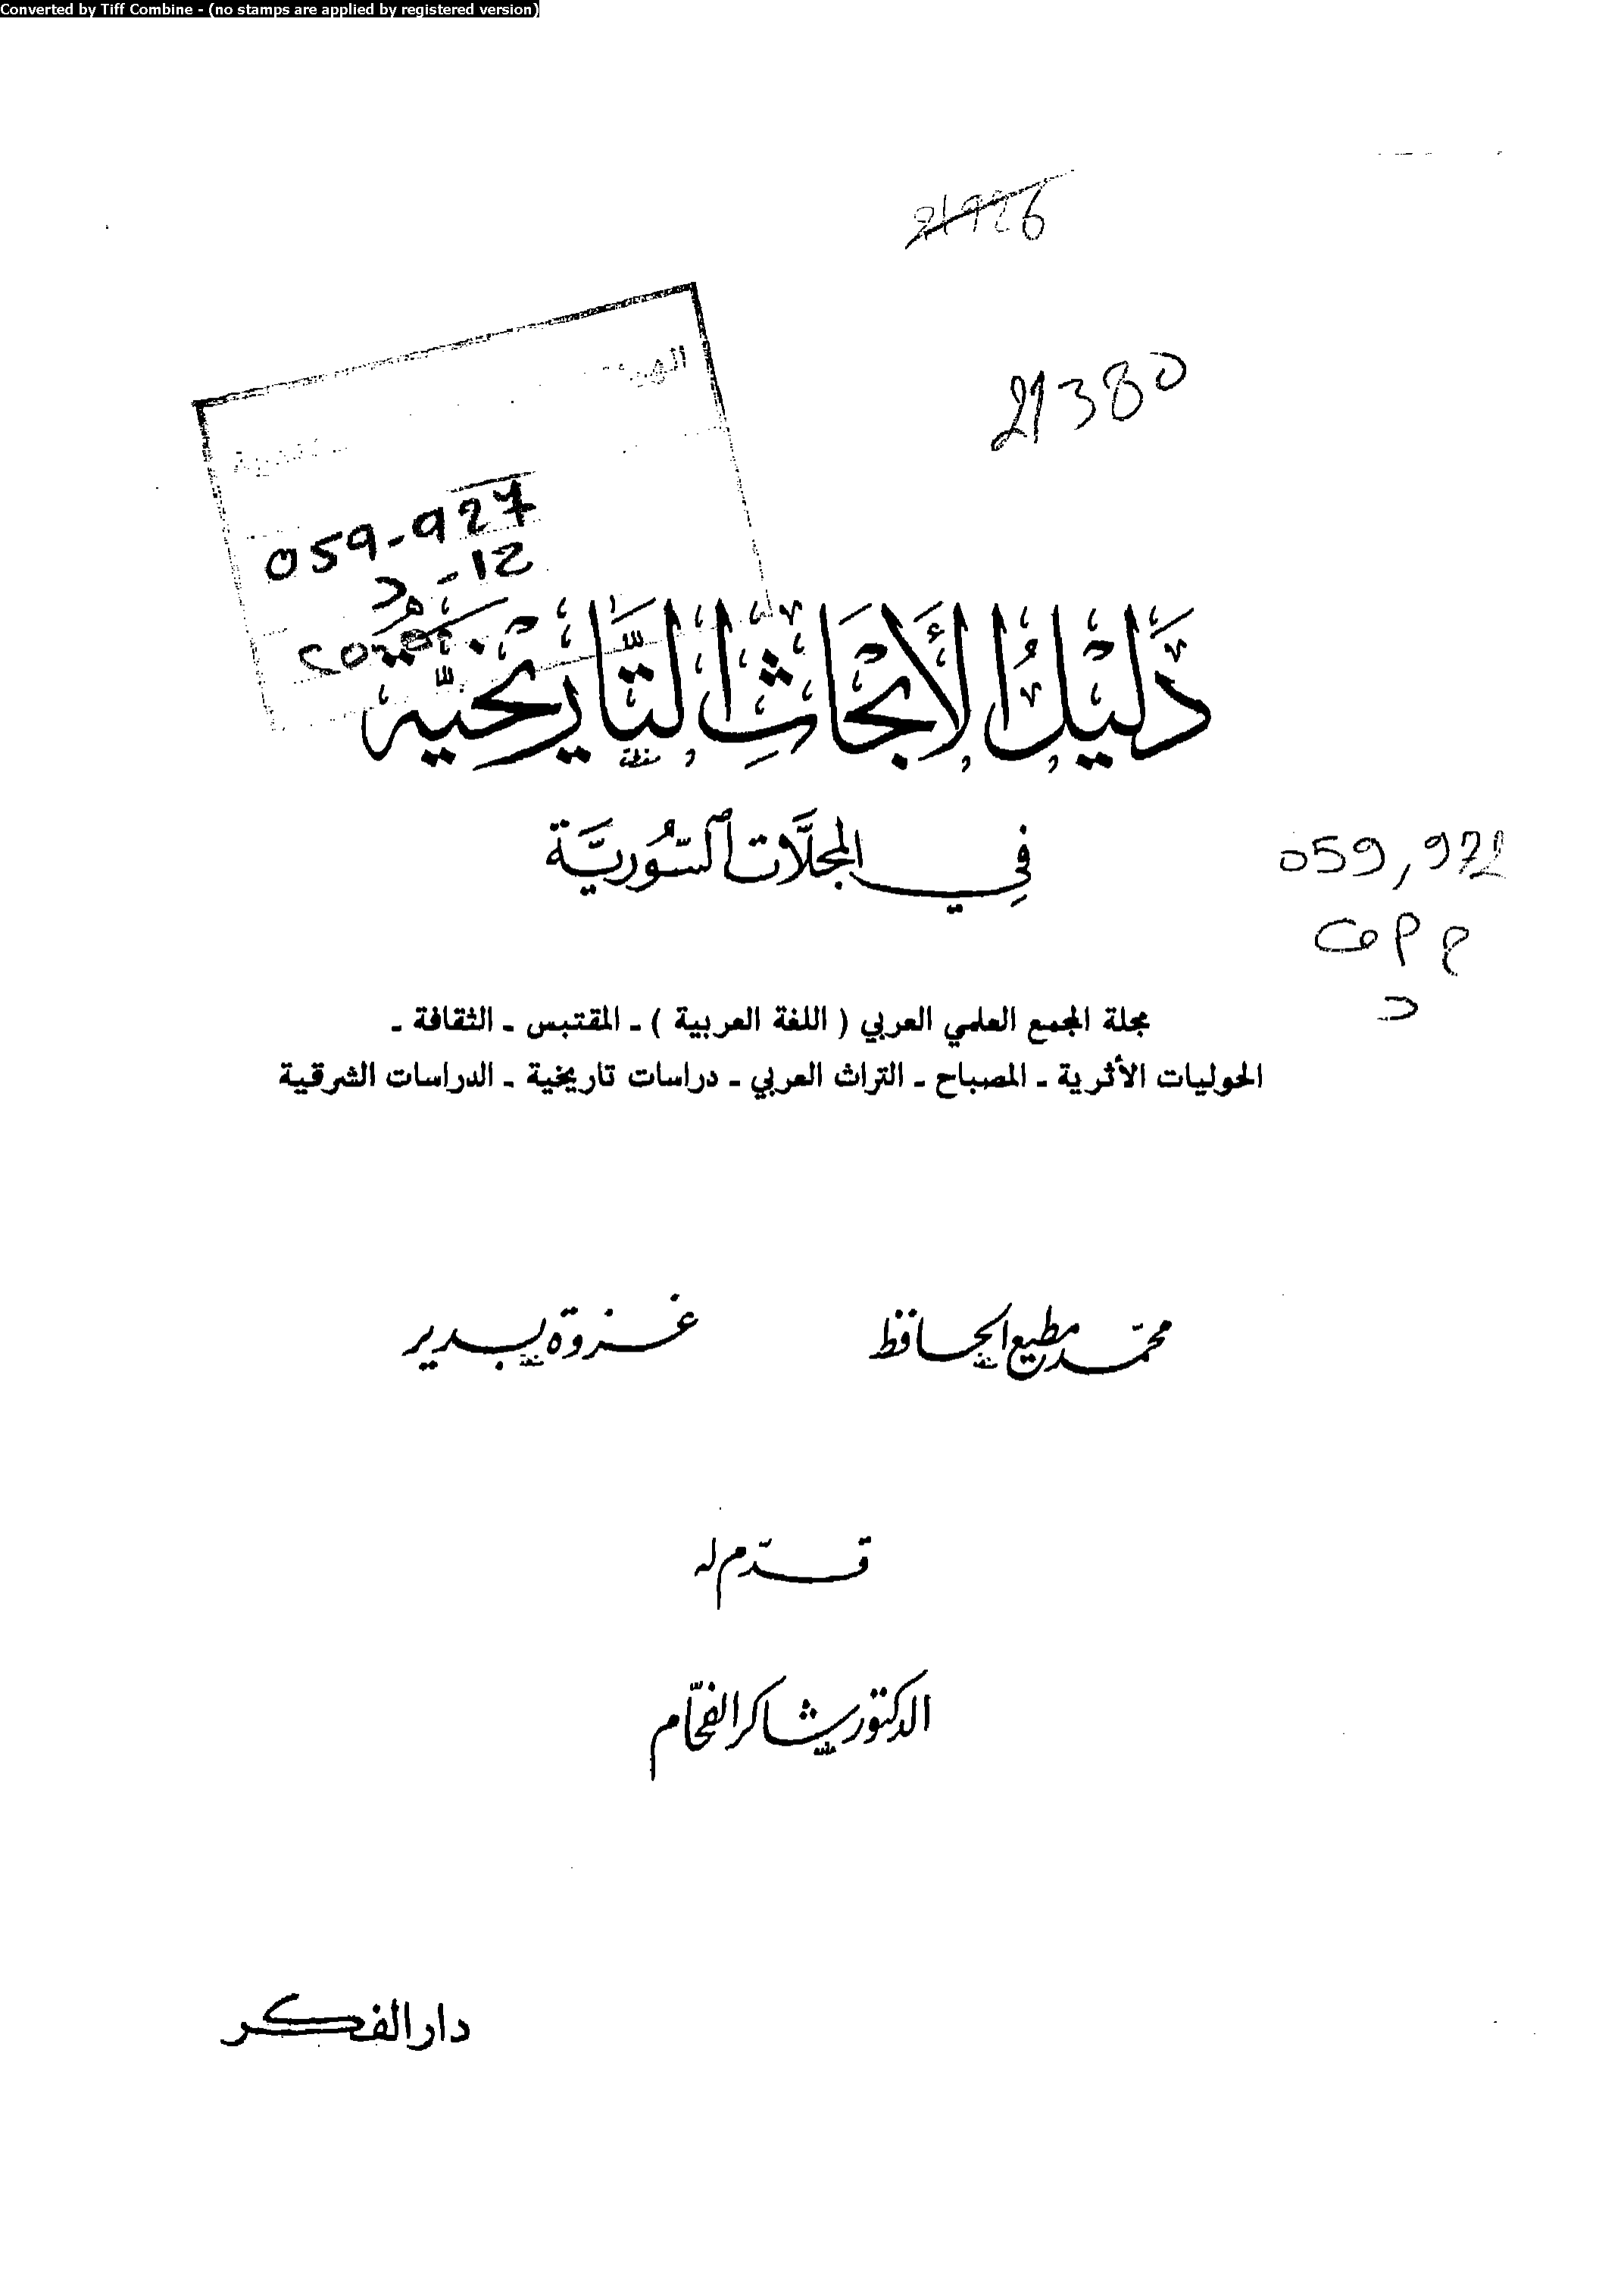 Converted by Tiff Combine - (no stamps are applied by registered version)
21926
21380
059-927
د - 12
دَلِيْلُ الأَبْحَاثِ التَّارِيْخِيَّة
فِي المجلَّات السُّوريَّة
059,972
د
مجلة المجمع العلمي العربي ( اللغة العربية ) ـ المقتبس ـ الثقافة ـ
الحوليات الأثرية ـ المصباح ـ التراث العربي ـ دراسات تاريخية ـ الدراسات الشرقية
محمّد مطيع الحافظ    غزوة بدير
قدّم له
الدكتور شاكر الفحّام
دار الفكر